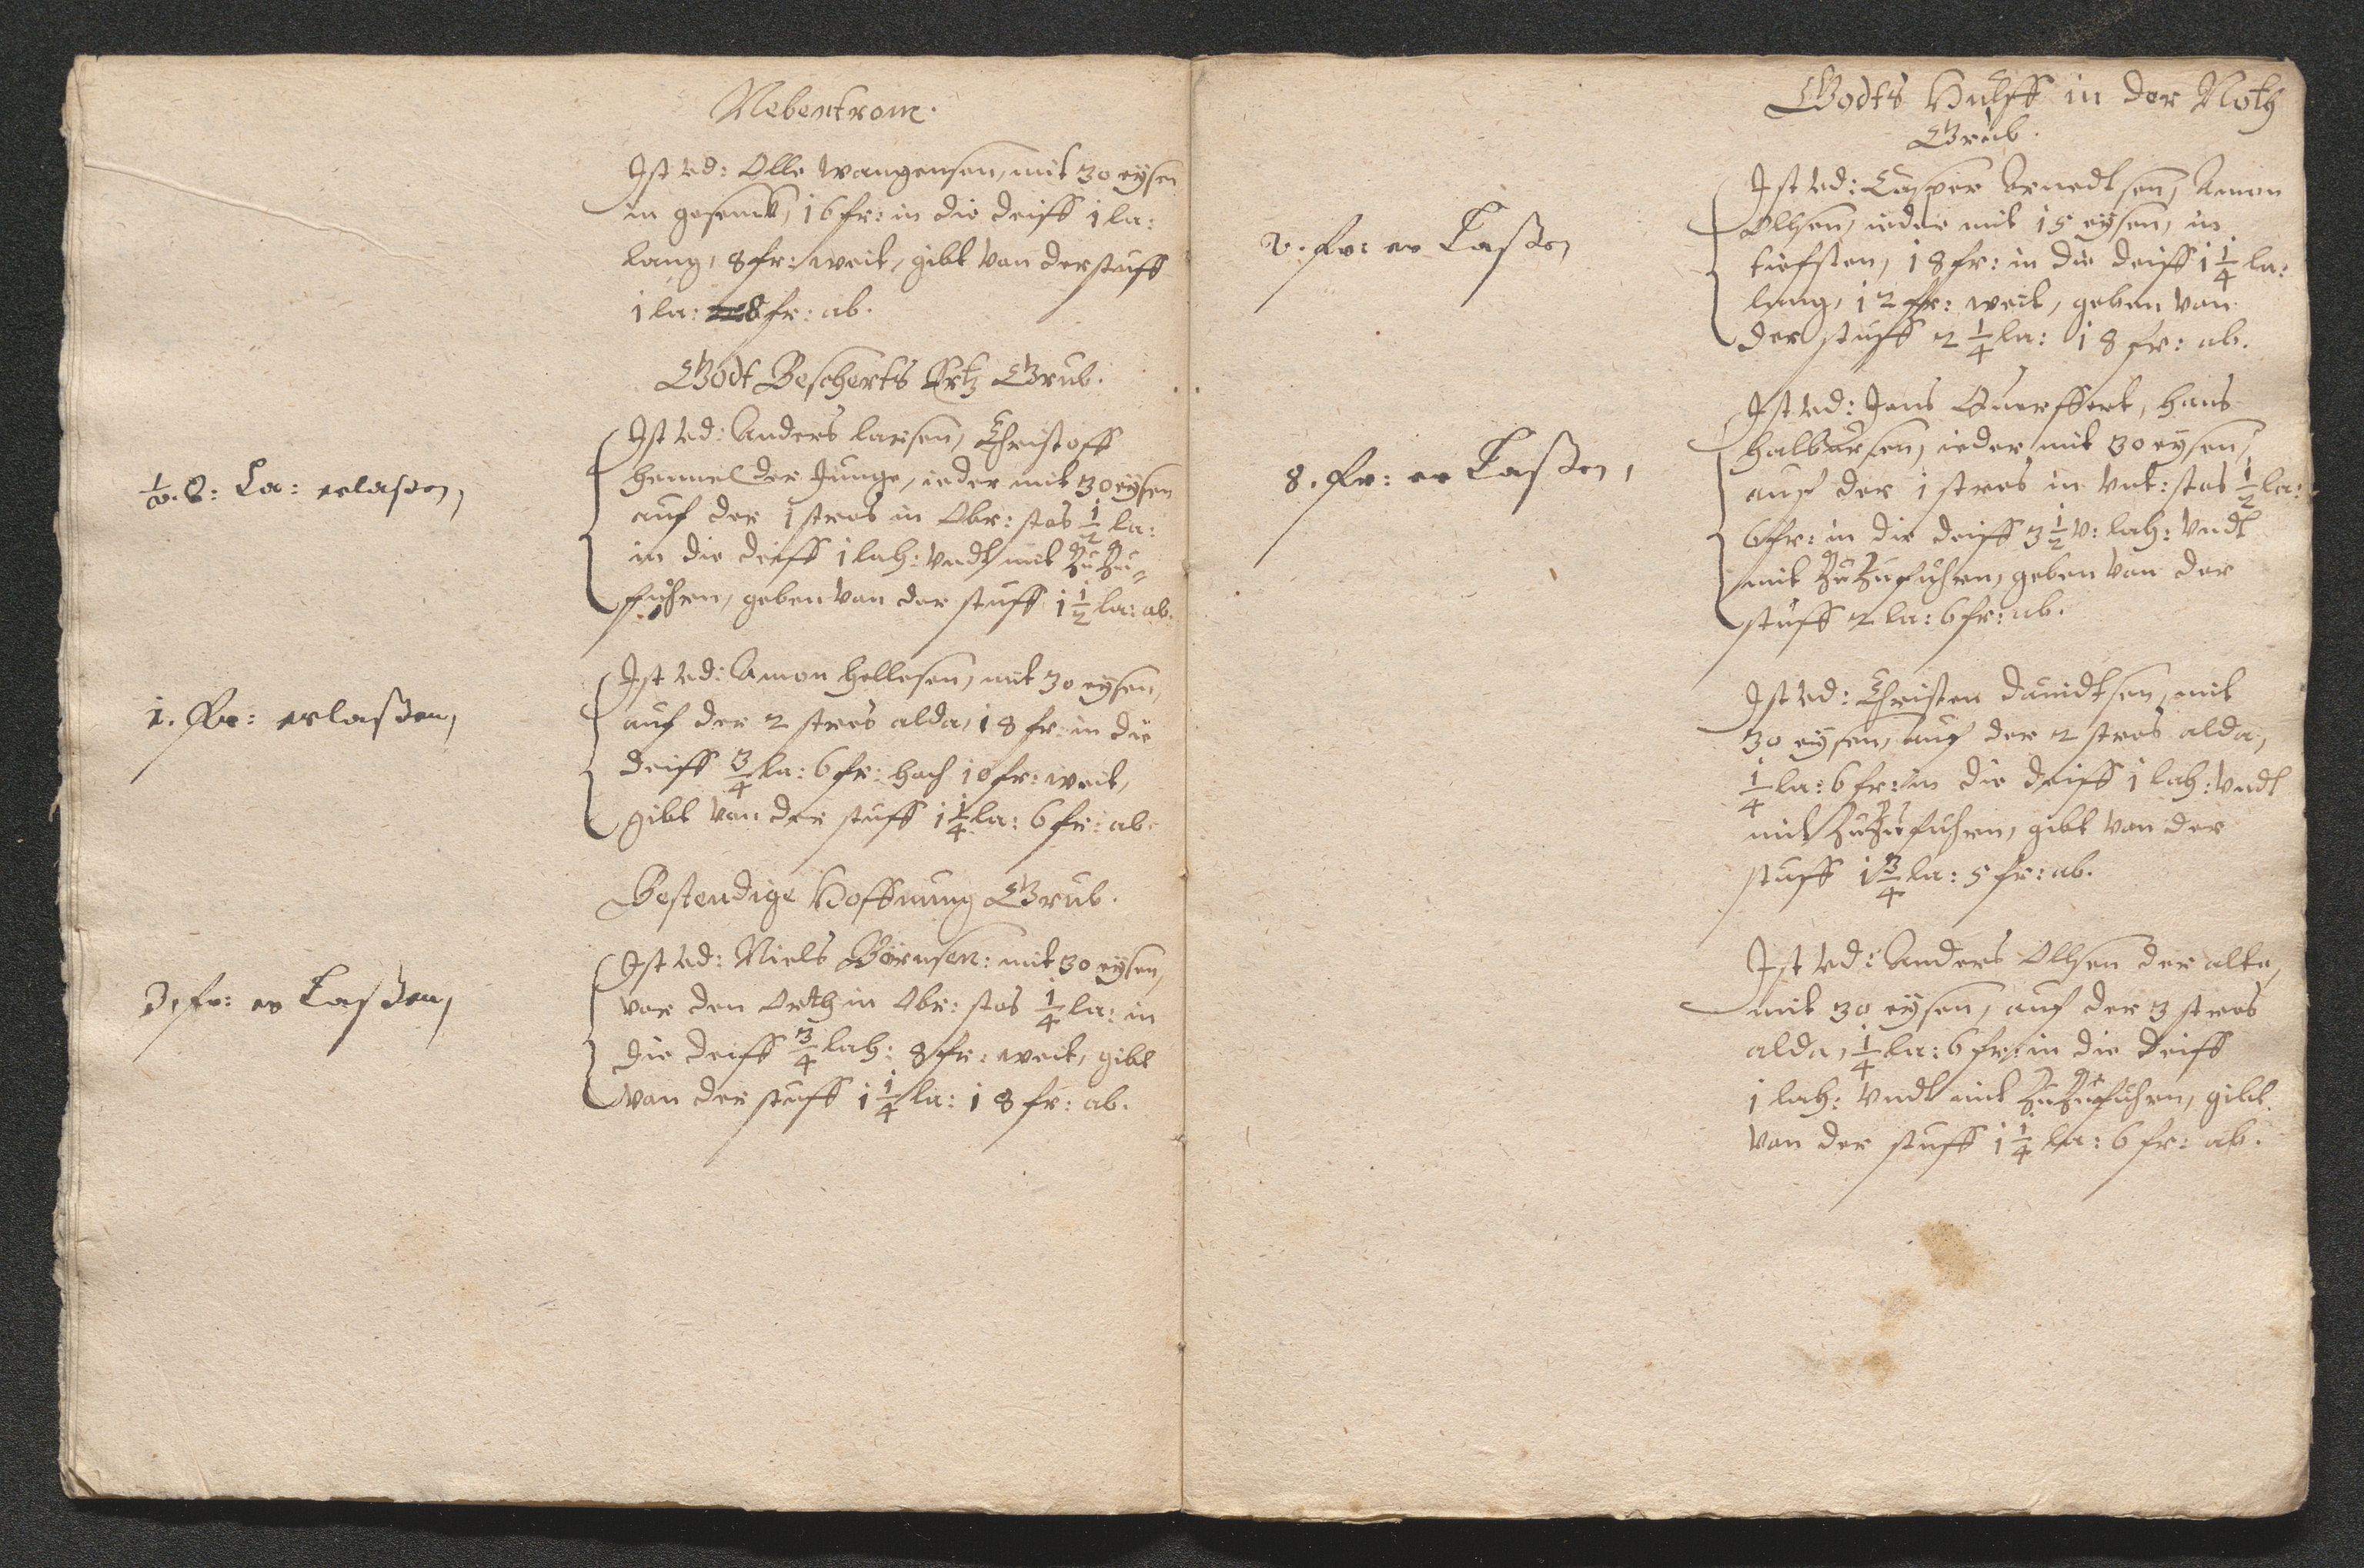 Nebentrom.
Ist vd: Olle wangensen, mit 30 eysen
in gesenck, 16 fr: in die deiff 1 la:
lang, 8 fr: weit, gibt van der stuff
1 la: 8 fr: ab.
Godt Bescherts Ertz Grub.
½ la: erlaßen,
Ist vd: Anders larsen, Christoff
hemmel der Junge, ieder mit 30 eysen
auf der 1 stros in Obr: stos ½ la:
in die deiff 1 lah: vndt mit Zu Zu-
fuhren, geben van der stuff 1½ la: ab.
1. fr: erlaßen,
Ist vd: Amon hellesen, mit 30 eysen,
auf der 2 stros alda, 18 fr: in die
deiff ¾ la: 6 fr: hoch 10 fr: weit,
gibt van der stuff 1¼ la: 6 fr: ab.
Bestendige Hoffnung Grub.
3. fr: er Laßen,
Ist vd: Niels Börnsen: mit 30 eysen,
vor den Orth in Obr: stos ¼ la: in
die deiff ¾ lah: 8 fr: weit, gibt
van der stuff 1¼ la: 18 fr: ab.
Godts Hulff in der Noth
Grub.
2. fr: er Laßen
Ist vd: Casper Arnedtsen, Amon
Ollsen, ieder mit 15 eysen, in
tiefsten, 18 fr: in die deiff 1¼ la:
lang, 12 fr: weit, geben van
der stuff 2¼ la: 18 fr: ab.
8. fr: er Laßen,
Ist vd: Jens Querffert, hans
halbarsen, ieder mit 30 eysen,
auf der 1 stros in vnt: stos ½ la:
6 fr: in die deiff 3½ v: lah: vndt
mit Zu Zufuhren, geben van der
stuff 2 la: 6 fr: ab.
Ist vd: Christen dauidtsen, mit
30 eysen, auf der 2 stros alda,
¼ la: 6 fr: in die deiff 1 lah: vndt
mit Zu Zufuhren, gibt van der
stuff 1¾ la: 5 fr: ab.
Ist vd: Anders Ollsen der alte,
mit 30 eysen, auf der 3 stros
alda, ¼ la: 6 fr: in die deiff
1 lah: vndt mit Zu Zufuhren, gibt
van der stuff 1¼ la: 6 fr: ab.